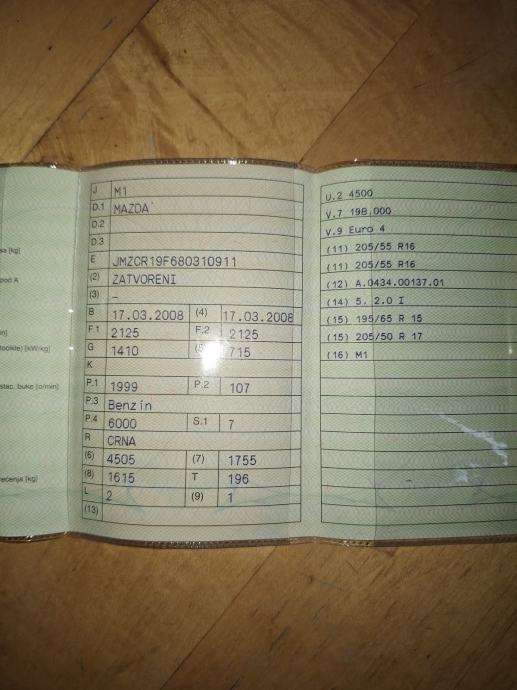 sa [kg]
pod A
n]
tocikle) [kW/kg]
stac. buke [o/min]
rećenja [kg]
J M1
D.1 MAZDA
D.2
D.3
E JMZCR19F680310911
(2) ZATVORENI
(3) -
B 17.03.2008 (4) 17.03.2008
F.1 2125 F.2 2125
G 1410 715
K
P.1 1999 P.2 107
P.3 Benzin
P.4 6000 S.1 7
R CRNA
(6) 4505 (7) 1755
(8) 1615 T 196
L 2 (9) 1
(13)
U.2 4500
V.7 198.000
V.9 Euro 4
(11) 205/55 R16
(11) 205/55 R16
(12) A.0434.00137.01
(14) 5. 2.0 I
(15) 195/65 R 15
(15) 205/50 R 17
(16) M1